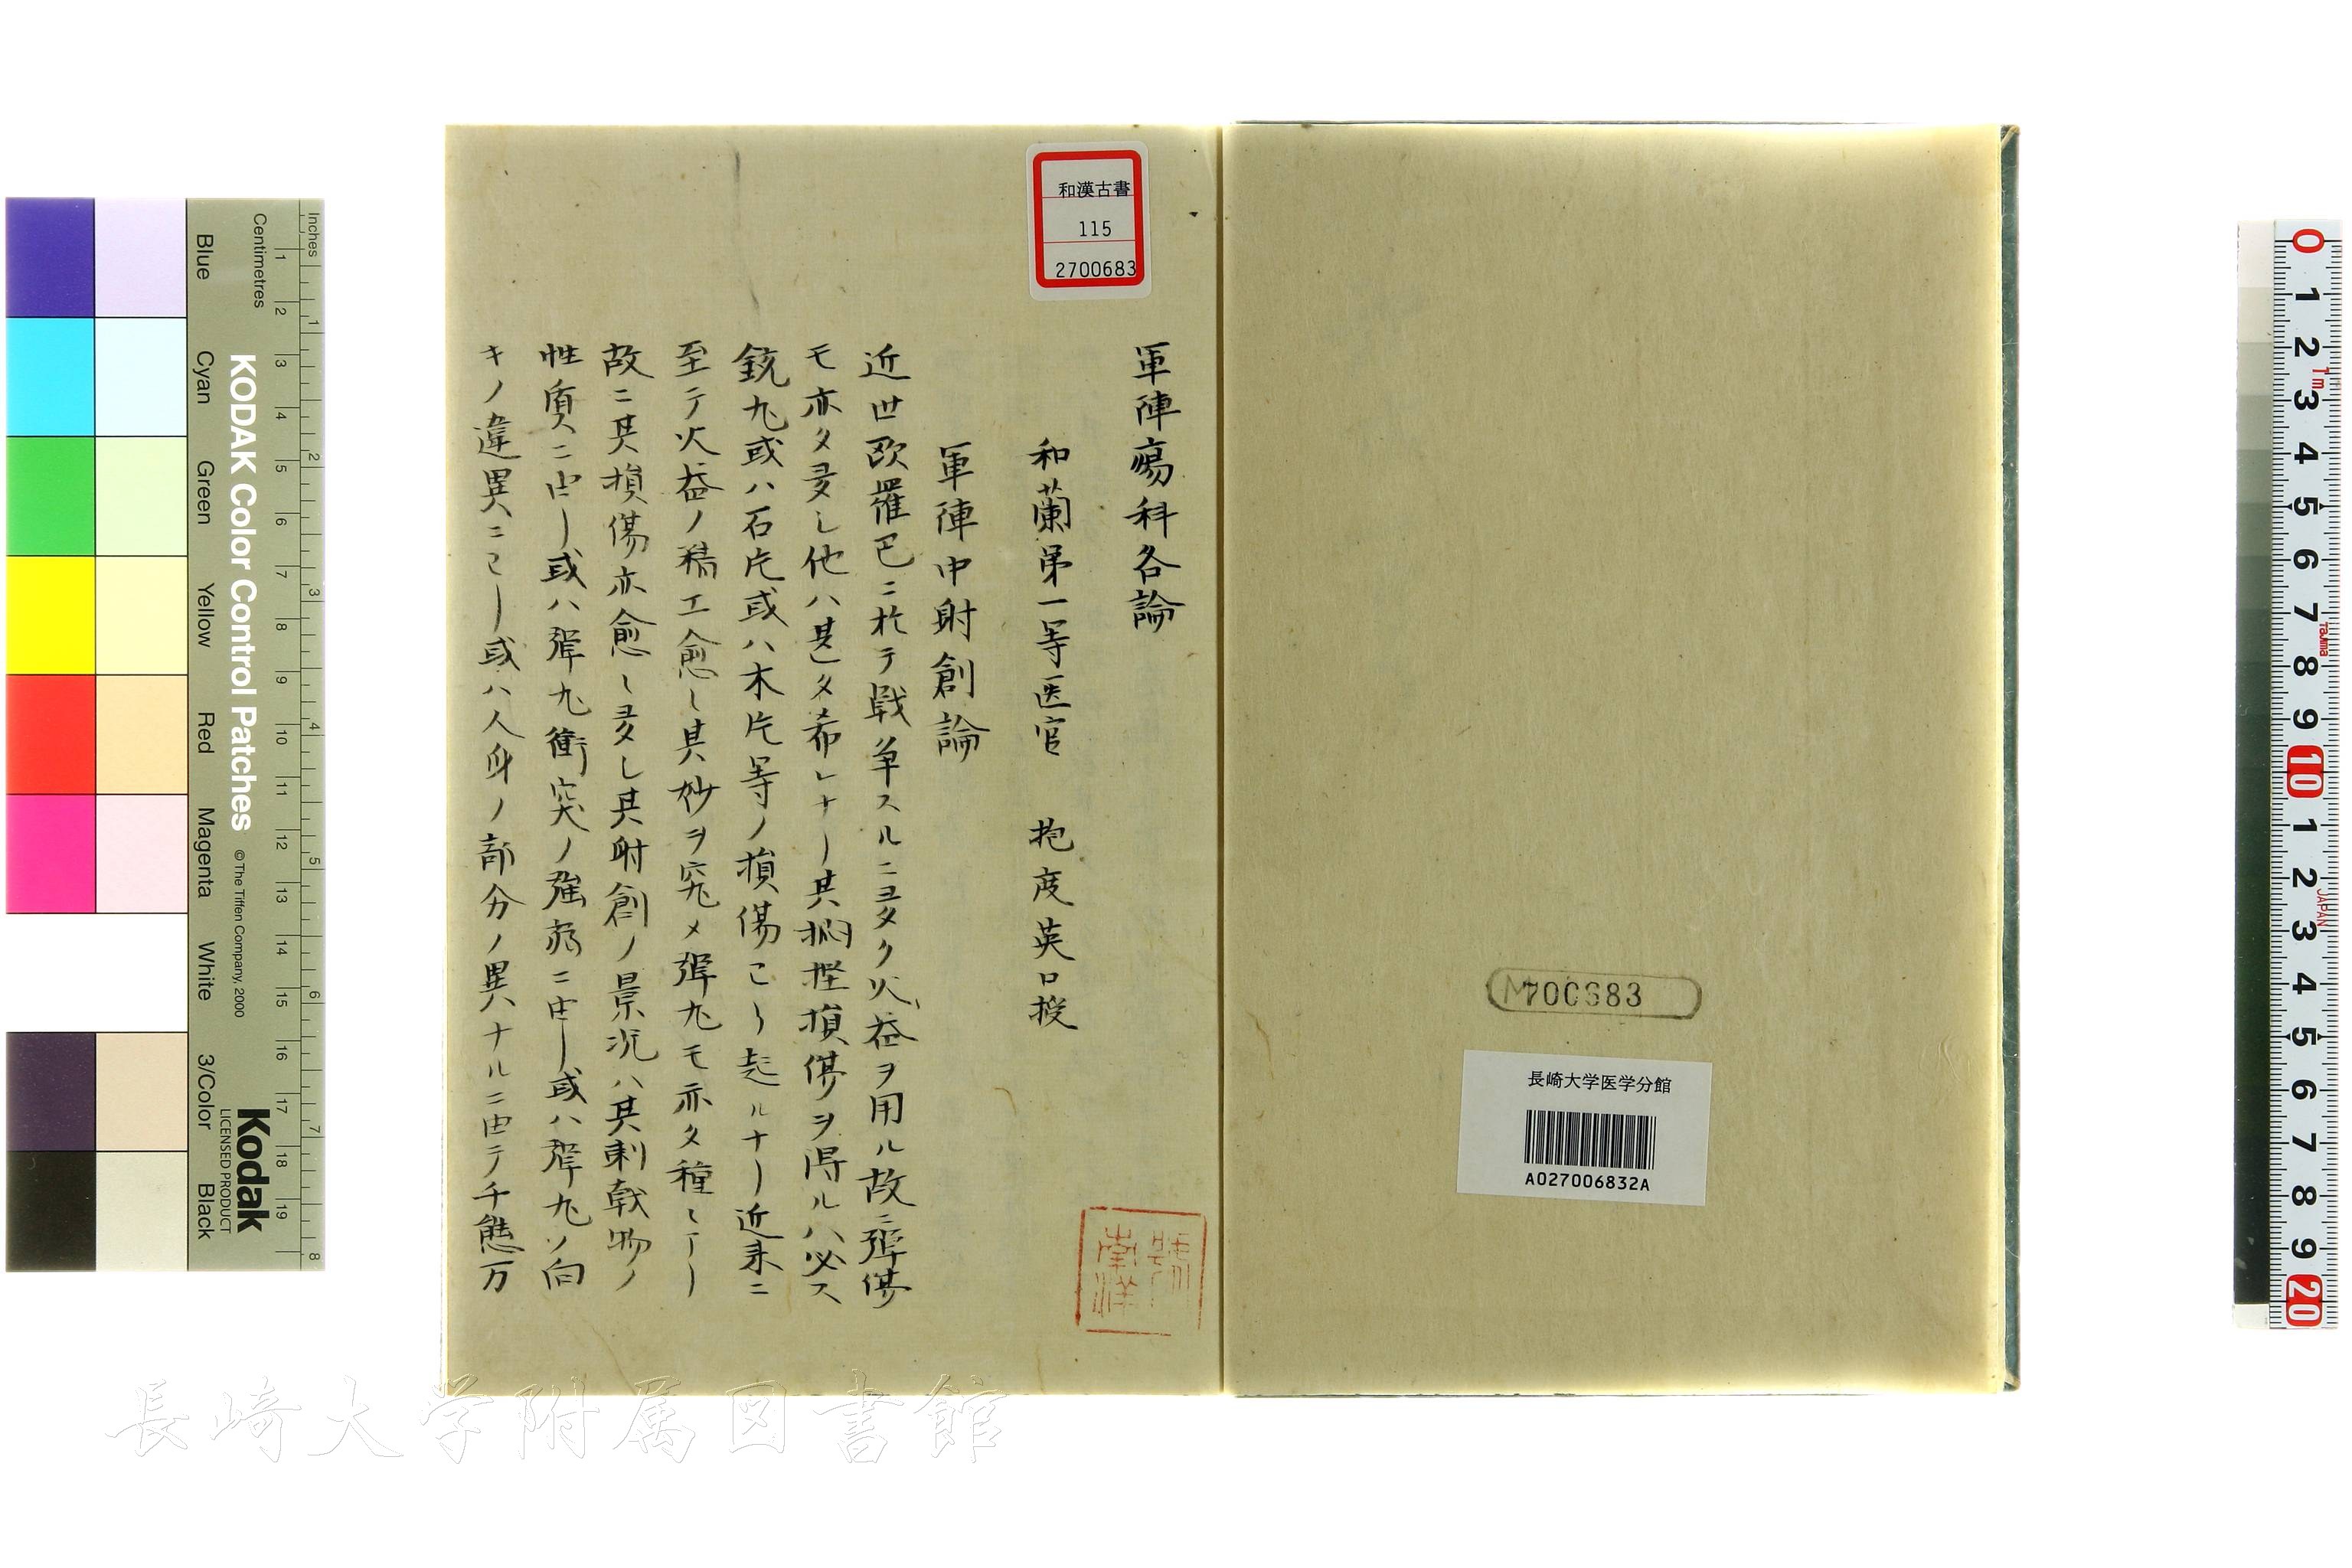 軍陣瘍科各論
和蘭第一等医官 抱度英口授
軍陣中射創論
近世欧羅巴ニ於テ戦争スルニ多ク火器ヲ用ル故ニ弾傷
モ亦タ多シ他ハ甚タ希レナリ其挫損傷ヲ得ルハ必ス
銃丸或ハ石片或ハ木片等ノ損傷ヨリ起ルナリ近来ニ
至テ火器ノ稱工愈シ其妙ヲ究メ弾丸モ亦タ種々アリ
故ニ其損傷亦愈シ多シ其射創ノ景况ハ其刺戟物ノ
性質ニ由リ或ハ弾丸衝突ノ強弱ニ由リ或ハ弾丸ノ向
キノ違異ニヨリ或ハ人身ノ部分ノ異ナルニ由テ千態万
和漢古書
115
2700683
M700683
長崎大学医学分館
A027006832A
長崎大学附属図書館
KODAK Color Control Patches
© The Tiffen Company, 2000
Kodak
LICENSED PRODUCT
Inches
Centimetres
Blue
Cyan
Green
Yellow
Red
Magenta
White
3/Color
Black
1 2 3 4 5 6 7 8
1 2 3 4 5 6 7 8 9 10 11 12 13 14 15 16 17 18 19
0 1 2 3 4 5 6 7 8 9 10 1 2 3 4 5 6 7 8 9 20
1m
Tajima
JAPAN